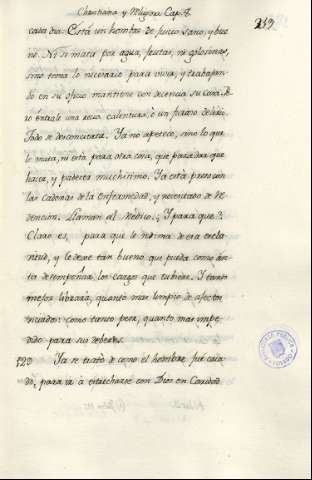 Christiana y Religiosa Cap. 8.
239
cada dia. Está un hombre de juicio sano, y bue
no. Ni se mata por agua, frutas, ni golosinas,
sino toma lo necesario para vivir, y trabajan
do en su oficio mantiene con decencia su casa. P.o
entrale una recia calentura, ò un furioso delirio.
Todo se desconcierta. Ya no apetece, sino lo que
le mata, ni está para otra cosa, que para dar que
hacer, y padecer muchisimo. Ya está preso con
las cadenas de la enfermedad, y necesitado de Re
dencion. Llaman al Medico. ¿Y para que?
Claro es, para que le redima de esa escla
vitud, y le deje tan bueno, que pueda como an
tes desempeñar los cargos que tubiere. Y tanto
mejor librará, quanto mas limpio de afectos
viciados: como tanto peor, quanto mas impe
dido para sus deberes.
529 Ya se trató de como el hombre fue cria
do, para ir à estrecharse con Dios en Caridad